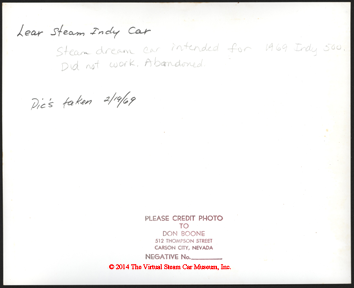 Lear Steam Indy Car
Steam dream car intended for 1969 Indy 500.
Did not work. Abandoned
Pic's taken 2/19/69
PLEASE CREDIT PHOTO
TO
DON BOONE
512 THOMPSON STREET
CARSON CITY, NEVADA
NEGATIVE No.
© 2014 The Virtual Steam Car Museum, Inc.